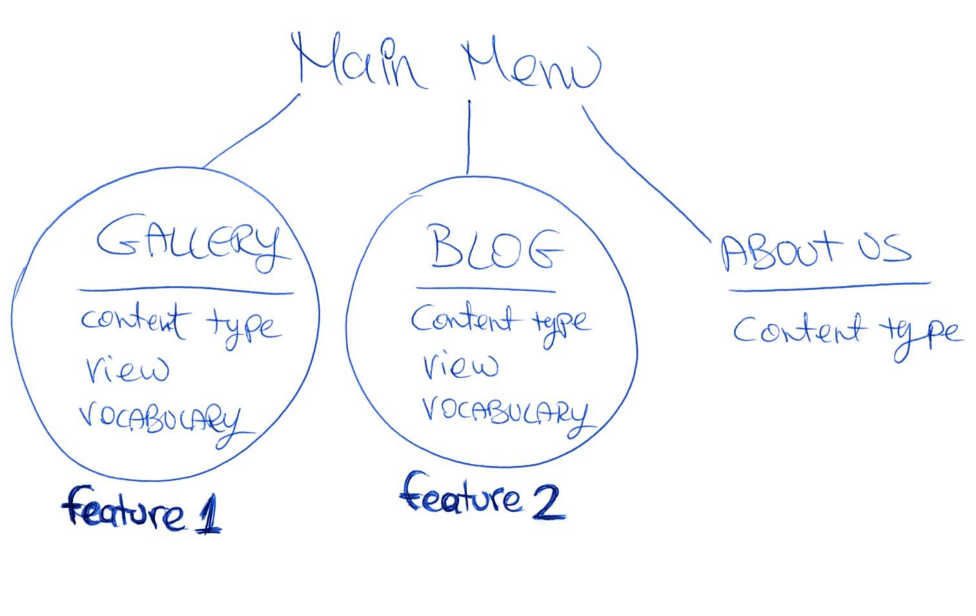 Main Menu
GALLERY
content type
view
VOCABULARY
feature 1
BLOG
Content type
view
VOCABULARY
feature 2
ABOUT US
Content type